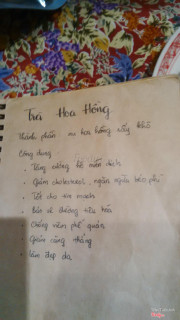 Trà Hoa Hồng
Thành phần: nụ hoa hồng sấy khô
Công dụng
- Tăng cường hệ miễn dịch
- Giảm cholesterol, ngăn ngừa béo phì
- Tốt cho tim mạch
- Bảo vệ đường tiêu hóa
- Chống viêm phế quản
- Giảm căng thẳng
- Làm đẹp da